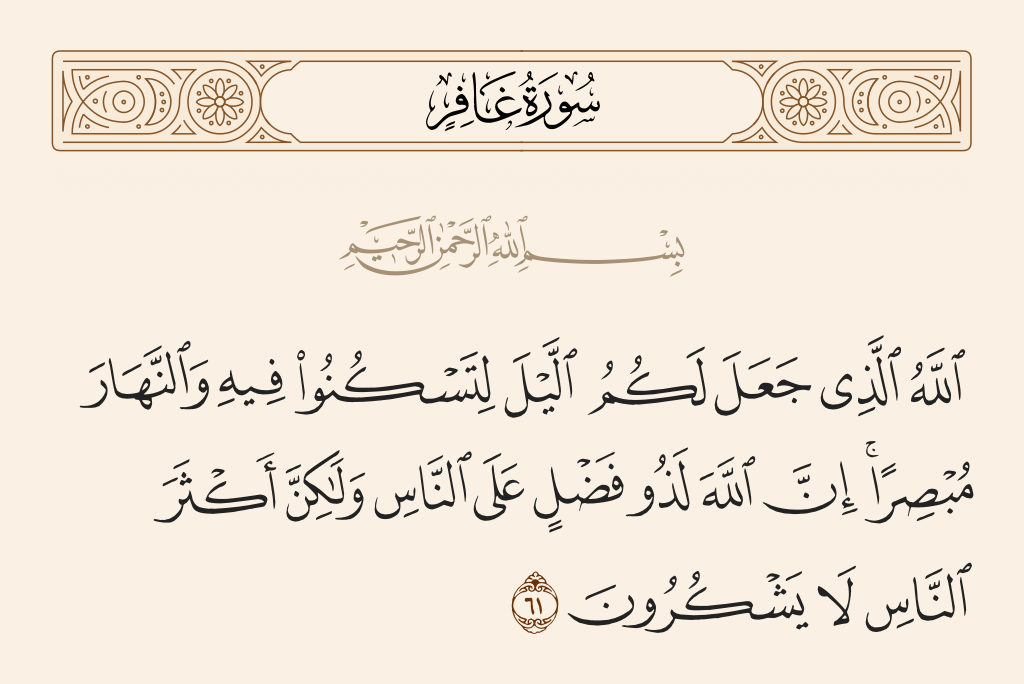 سُورَةُ غَافِرٍ
بِسْمِ ٱللَّهِ ٱلرَّحْمَٰنِ ٱلرَّحِيمِ
ٱللَّهُ ٱلَّذِى جَعَلَ لَكُمُ ٱلَّيْلَ لِتَسْكُنُوا۟ فِيهِ وَٱلنَّهَارَ
مُبْصِرًا ۚ إِنَّ ٱللَّهَ لَذُو فَضْلٍ عَلَى ٱلنَّاسِ وَلَٰكِنَّ أَكْثَرَ
ٱلنَّاسِ لَا يَشْكُرُونَ ٦١